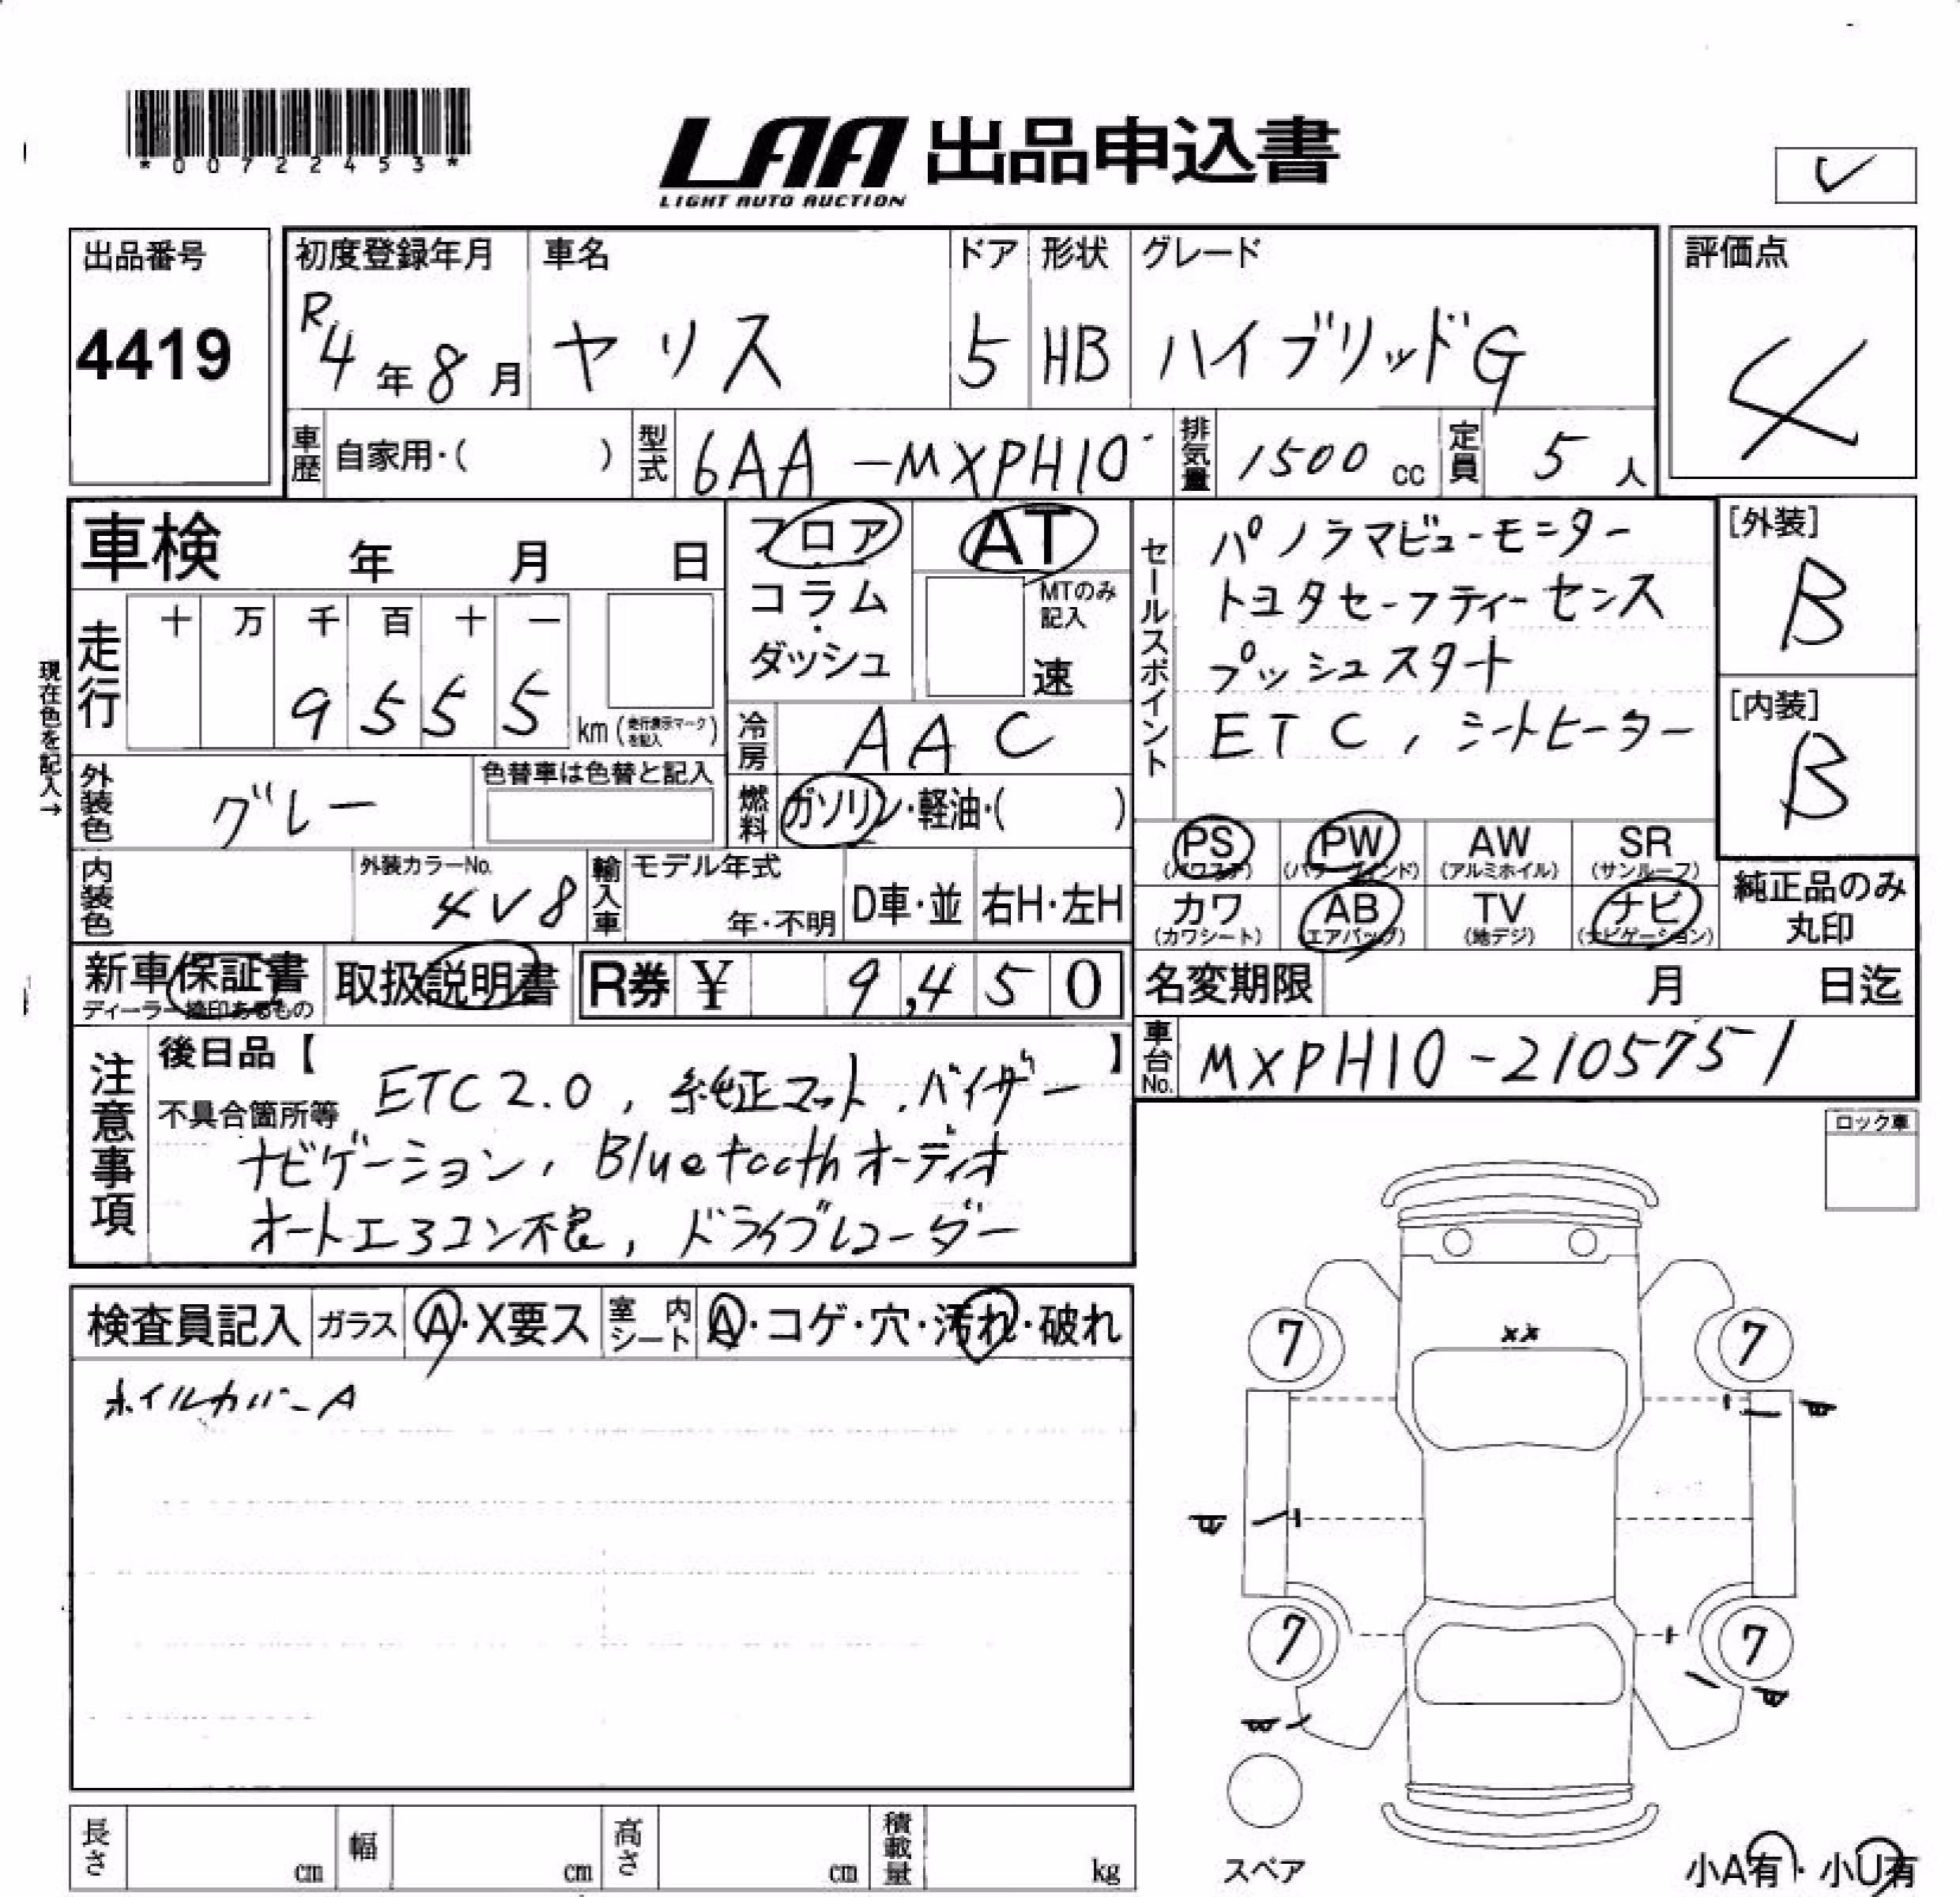 *00722453*
LAA 出品申込書
LIGHT AUTO AUCTION
出品番号
4419
初度登録年月
R4年8月
車名
ヤリス
ドア
5
形状
HB
グレード
ハイブリッドG
評価点
4
車歴
自家用・( )
型式
6AA-MXPH10
排気量
1500 cc
定員
5人
車検 年 月 日
フロア
コラム
・
ダッシュ
AT
MTのみ
記入
速
セールスポイント
パノラマビューモニター
トヨタセーフティーセンス
プッシュスタート
ETC, シートヒーター
[外装]
B
[内装]
B
現在色を記入→
走行
十 万 千 百 十 一
9 5 5 5
km (走行表示マークを記入)
冷房
AAC
外装色
グレー
色替車は色替と記入
燃料
ガソリン・軽油・( )
PS
(パワステ)
PW
(パワーウィンド)
AW
(アルミホイル)
SR
(サンルーフ)
カワ
(カワシート)
AB
(エアバッグ)
TV
(地デジ)
ナビ
(ナビゲーション)
純正品のみ
丸印
内装色
外装カラーNo.
4V8
輸入車
モデル年式
年・不明
D車・並
右H・左H
新車保証書
ディーラー捺印あるもの
取扱説明書
R券 ¥ 9,450
名変期限 月 日迄
車台No.
MXPH10-2105751
注意事項
後日品【 】
不具合箇所等
ETC2.0, 純正マット, バイザー
ナビゲーション, Bluetoothオーディオ
オートエアコン不良, ドライブレコーダー
ロック車
検査員記入
ガラス
A・X要ス
室内シート
A・コゲ・穴・汚れ・破れ
ホイルカバーA
××
7
7
7
7
スペア
小A有・小U有
長さ cm
幅 cm
高さ cm
積載量 kg